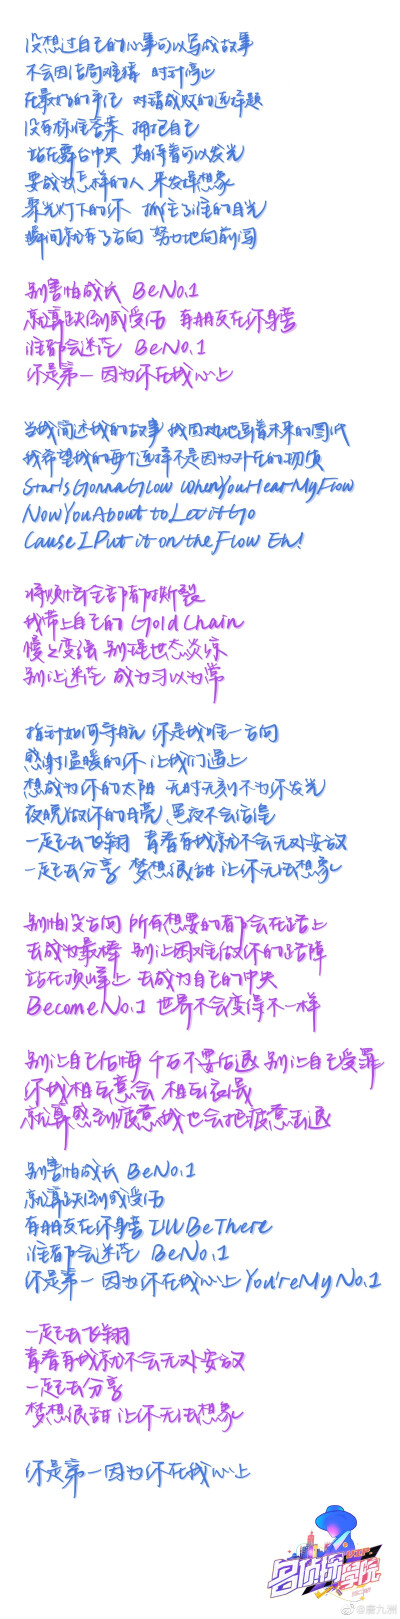 没想过自己的心事可以写成故事
不会因结局难猜 时针停止
在最好的年纪 对错成败的选择题
没有标准答案 拥抱自己
站在舞台中央 期待着可以发光
要成为怎样的人 来发挥想象
聚光灯下的你 抓住了谁的目光
瞬间就有了方向 努力地向前闯
别害怕成长 BeNo.1
就算跌倒或受伤 有朋友在你身旁
谁都会迷茫 BeNo.1
你是第一 因为你在我心上
当我简述我的故事 我固执地画着未来的图纸
我希望我的每个选择不是因为外在的物质
StarIsGonnaGlow WhenYouHearMyFlow
NowYouAbout to Let it Go
Cause I Put it on the Flow Eh!
将烦恼全部都斩裂
我带上自己的 Gold Chain
慢慢变强 别理世态炎凉
别让迷茫 成为习以为常
指针如何导航 你是我唯一方向
感谢温暖的你 让我们遇上
想成为你的太阳 无时无刻不为你发光
夜晚做你的月亮 黑夜不会惶惶
一起去飞翔 青春有我就不会无处安放
一起去分享 梦想很甜 让你无法想象
别怕没方向 所有想要的都会在路上
去成为最棒 别让困难做你的路障
站在顶峰上 去成为自己的中央
BecomeNo.1 世界不会变得不一样
别让自己后悔 千万不要后退 别让自己受罪
你我相互意会 相互衣食
就算感到疲惫我也会把疲惫击退
别害怕成长 BeNo.1
就算跌倒或受伤
有朋友在你身旁 I'll BeThere
谁都会迷茫 BeNo.1
你是第一 因为你在我心上 You'reMy No.1
一起去飞翔
青春有我就不会无处安放
一起去分享
梦想很甜 让你无法想象
你是第一因为你在我心上
名侦探学院
@唐九洲